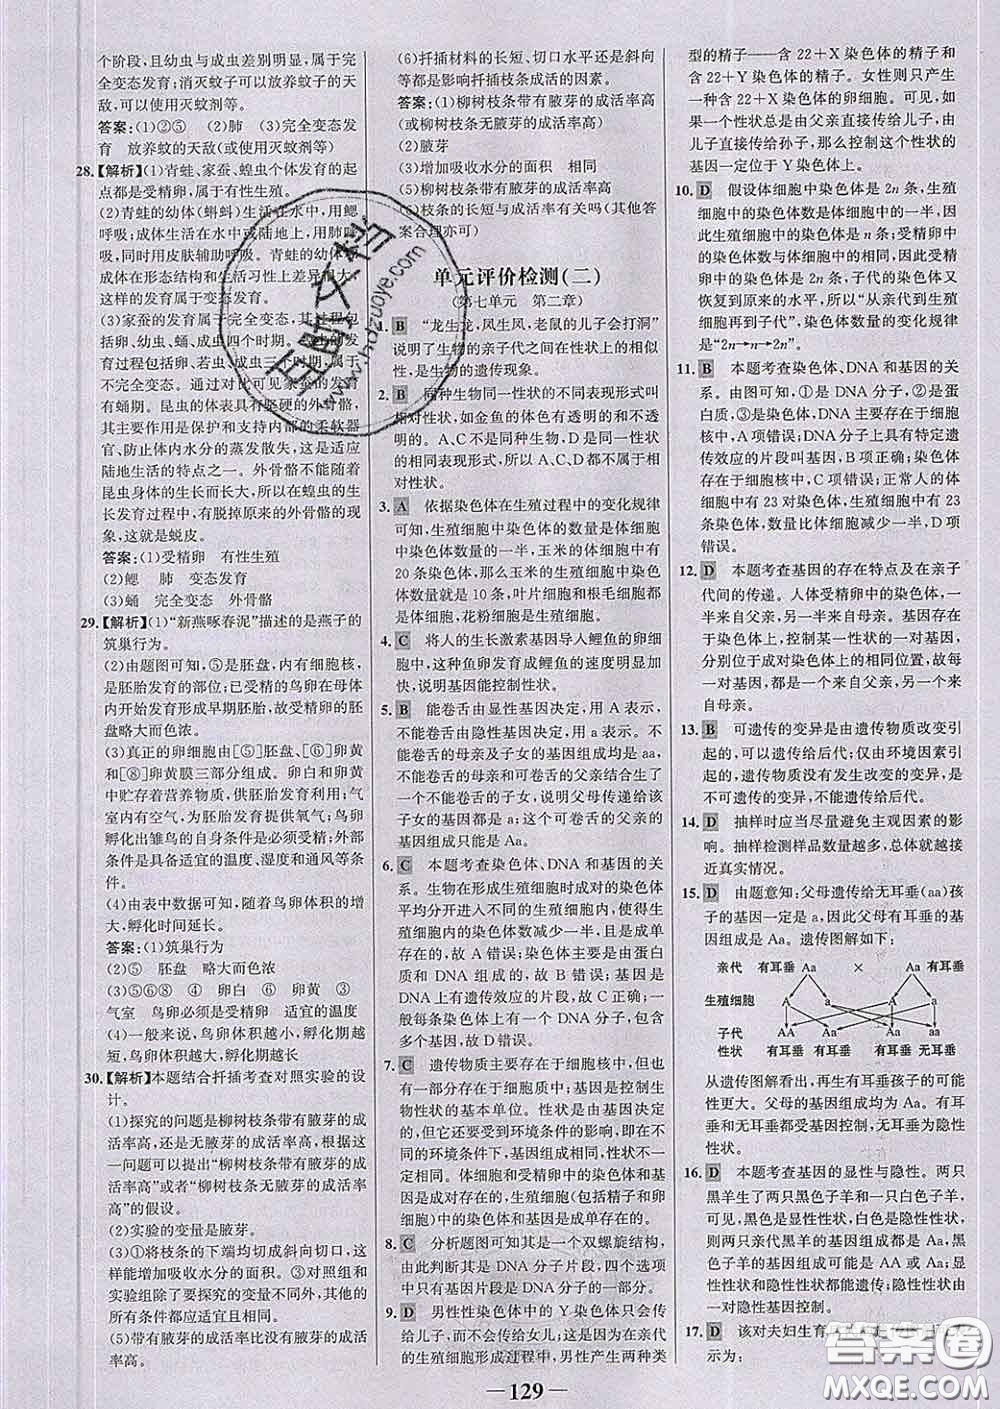 个阶段,且幼虫与成虫差别明显,属于完
全变态发育;消灭蚊子可以放养蚊子的天
敌,可以使用灭蚊剂等。
答案:(1)②⑤ (2)肺 (3)完全变态发
育 放养蚊的天敌(或使用灭蚊剂等)
28.【解析】(1)青蛙、家蚕、蝗虫个体发育的起
点都是受精卵,属于有性生殖。
(2)青蛙的幼体(蝌蚪)生活在水中,用鳃
呼吸;成体生活在水中或陆地上,用肺呼
吸,同时用皮肤辅助呼吸。青蛙的幼体与
成体在形态结构和生活习性上差异很大,
这样的发育属于变态发育。
(3)家蚕的发育属于完全变态,其过程包
括卵、幼虫、蛹、成虫四个时期。蝗虫的发
育过程包括卵、若虫、成虫三个时期,属于
不完全变态。通过对比可见家蚕的发育
有蛹期。昆虫的体表有坚硬的外骨骼,
其主要作用是保护和支持内部的柔软器
官、防止体内水分的蒸发散失,这是适应
陆地生活的特点之一。外骨骼不能随着
昆虫身体的生长而长大,所以在蝗虫的生
长发育过程中,有脱掉原来的外骨骼的现
象,这就是蜕皮。
答案:(1)受精卵 有性生殖
(2)鳃 肺 变态发育
(3)蛹 完全变态 外骨骼
29.【解析】(1)“新燕啄春泥”描述的是燕子的
筑巢行为。
(2)由题图可知,⑤是胚盘,内有细胞核,
是胚胎发育的部位;已受精的鸟卵在母体
内开始发育形成早期胚胎,故受精卵的胚
盘略大而色浓。
(3)真正的卵细胞由[⑤]胚盘、[⑥]卵黄
和[⑧]卵黄膜三部分组成。卵白和卵黄
中贮存着营养物质,供胚胎发育利用;气
室内有空气,为胚胎发育提供氧气;鸟卵
孵化出雏鸟的自身条件是必须受精;外部
条件是具备适宜的温度、湿度和通风等条
件。
(4)由表中数据可知,随着鸟卵体积的增
大,孵化时间延长。
答案:(1)筑巢行为
(2)⑤ 胚盘 略大而色浓
(3)⑤⑥⑧ ④ 卵白 ⑥ 卵黄 ③
气室 鸟卵必须是受精卵 适宜的温度
(4)一般来说,鸟卵体积越小,孵化时期越
短;鸟卵体积越大,孵化时间越长
30.【解析】本题结合扦插考查对照实验的设
计。
(1)探究的问题是柳树枝条带有腋芽的成
活率高,还是无腋芽的成活率高。根据这
一问题可以提出“柳树枝条带有腋芽的成
活率高”或者“柳树枝条无腋芽的成活率
高”的假设。
(2)实验的变量是腋芽。
(3)①将枝条的下端均切成斜向切口,这
样能增加吸收水分的面积。③对照组和
实验组除了要探究的变量不同以外,其他
的所有条件都应适宜且相同。
(5)带有腋芽的成活率比没有腋芽的成活
率高。
(6)扦插材料的长短、切口水平还是斜向
等都是影响扦插枝条成活的因素。
答案:(1)柳树枝条带有腋芽的成活率高
(或柳树枝条无腋芽的成活率高)
(2)腋芽
(3)增加吸收水分的面积 相同
(5)柳树枝条带有腋芽的成活率高
(6)枝条的长短与成活率有关吗(其他答
案合理亦可)
单元评价检测(二)
(第七单元 第二章)
1. B “龙生龙,凤生凤,老鼠的儿子会打洞”
说明了生物的亲子代之间在性状上的相似
性,是生物的遗传现象。
2. B 同种生物同一性状的不同表现形式叫
相对性状,如金鱼的体色有透明的和不透
明的。A、C不是同种生物,D是同一性状
的相同表现形式,所以A、C、D都不属于相
对性状。
3. A 依据染色体在生殖过程中的变化规律
可知,生殖细胞中染色体的数量是体细胞
中染色体数量的一半,玉米的体细胞内有
20条染色体,那么玉米的生殖细胞染色体
数量就是10条,叶片细胞和根毛细胞都是
体细胞,花粉细胞是生殖细胞。
4. C 将人的生长激素基因导入鲤鱼的卵细
胞中,这种鱼卵发育成鲤鱼的速度明显加
快,说明基因能控制性状。
5. B 能卷舌由显性基因决定,用A表示,
不能卷舌由隐性基因决定,用a表示。不
能卷舌的母亲及子女的基因组成均是aa,
不能卷舌的母亲和可卷舌的父亲结合生了
一个不能卷舌的子女,说明父母传递给该
子女的基因都是a;这个可卷舌的父亲的
基因组成只能是Aa。
6. C 本题考查染色体、DNA和基因的关
系。生物在形成生殖细胞时成对的染色体
平均分开进入不同的生殖细胞内,因此生
殖细胞内的染色体数少一半,且是成单存
在的,故A错误;染色体主要是由蛋白
质和DNA组成的,故B错误;基因是
DNA上具有遗传效应的片段,故C正确;一
般每条染色体上有一个DNA分子,包含
多个基因,故D错误。
7. C 遗传物质主要存在于细胞核中,但也
有一部分存在于细胞质中;基因是控制生
物性状的基本单位。性状是由基因决定
的,但它还要受到环境条件的影响,即在不
同的环境条件下,基因控制的性状的表现
不完全相同。体细胞和受精卵中染色体和
基因成对存在,生殖细胞(包括精子和卵细
胞)中的染色体和基因是成单存在的。
8. C 分析题图可知其是一个双螺旋结构,
由此判断其是DNA分子片段,四个选项
中只有基因片段是DNA分子的一部分。
9. D 男性性染色体中的Y染色体只会传
给儿子,而不会传给女儿;这是因为在亲代
的生殖细胞形成过程中,男性产生两种类
型的精子——含22+X染色体的精子和
含22+Y染色体的精子。女性则只产生
一种含22+X染色体的卵细胞。可见,如
果一个性状总是由父亲直接传给儿子,由
儿子直接传给孙子,那么控制这个性状的
基因一定位于Y染色体上。
10. D 假设体细胞中染色体是2n条,生殖
细胞中的染色体数是体细胞中的一半,因
此生殖细胞中的染色体是n条;受精卵中
的染色体是精子和卵细胞中的染色体之
和,因此受精卵中的染色体是2n条;受精
卵中的染色体和亲代体细胞中的染色体
数量保持一致,子代的染色体又
恢复到原来的水平,所以“从亲代到生殖
细胞再到子代”,染色体数量的变化规律
是“2n→n→2n”。
11. B 本题考查染色体、DNA和基因的关
系。由图可知,①是DNA分子,②是蛋
白质,③是染色体,DNA主要存在于细胞
核中,A项错误;DNA分子上具有特定遗
传效应的片段叫基因,B项正确;细胞中
的染色体主要存在于细胞核中,而不是细
胞质中,C项错误;正常人的体细胞中有
23对染色体,生殖细胞中有23
条染色体,数量比体细胞减少一半,D项
错误。
12. D 本题考查基因的存在特点及在亲子
代间的传递。人体受精卵中的染色体,
一半来自父亲,一半来自母亲。基因存在
于染色体上,控制某一性状的一对基因,
分别位于成对染色体上的相同位置,故每
一对基因,都是一个来自父亲,一个来
自母亲。
13. B 可遗传的变异是由遗传物质改变引
起的,可以遗传给后代;仅由环境因素引
起的,遗传物质没有发生改变的变异,是
不可遗传的变异,不能遗传给后代。
14. D 抽样时应当尽量避免主观因素的影
响。抽样检测样品数量越多,总体就越接
近真实情况。
15. D 由题意知:父母遗传给无耳垂(aa)孩
子的基因一定是a,因此父母有耳垂的基
因组成是Aa。遗传图解如下:
亲代 有耳垂 Aa × Aa 有耳垂
生殖细胞 A a A a
子代 AA Aa Aa aa
性状 有耳垂 有耳垂 有耳垂 无耳垂
从遗传图解看出,再生有耳垂孩子的可能
性更大。父母的基因组成均是Aa。有耳
垂和无耳垂都受基因控制,无耳垂为隐性
性状。
16. D 本题考查基因的显性与隐性。两只
黑羊生了两只黑色子羊和一只白色子羊,
可见,黑色是显性性状,白色是隐性性状,
则两只亲代黑羊的基因组成都是Aa,黑
色子羊的基因组成可能是AA或Aa;显
性性状和隐性性状都能遗传;隐性性状由
一对隐性基因控制。
17. D 该对夫妇生育
示为:
129
互助文档
www.hdzuoye.com
答案圈
MXQE.COM